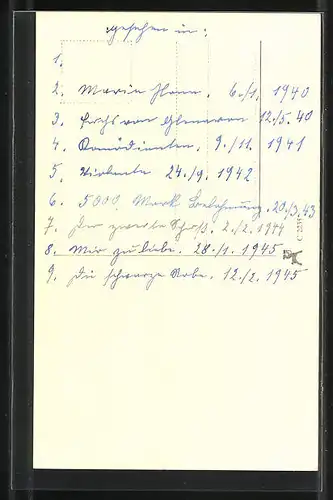 gesehen in:
1.
2. Maria Ilona. 6./1. 1940
3. Fuchs von Glenarvon 12./5. 40
4. Komödianten. 9./11. 1941
5. Violanta 24./9. 1942
6. 5000 Mark Belohnung. 20./3. 43
7. Der zweite Schuß. 2./2. 1944
8. Mir zuliebe. 28./1. 1945
9. Die schwarze Robe. 12./2. 1945